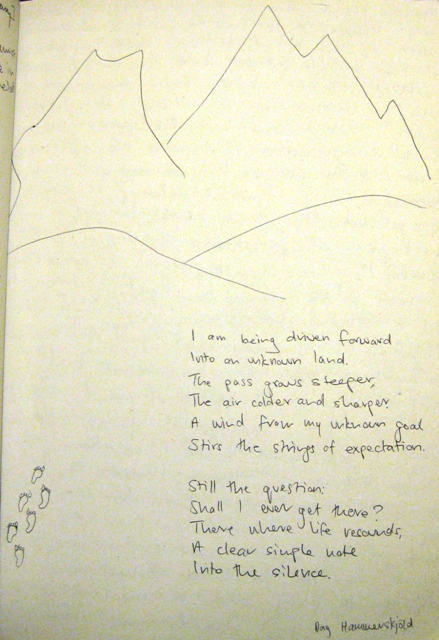 I am being driven forward
Into an unknown land.
The pass grows steeper,
The air colder and sharper.
A wind from my unknown goal
Stirs the strings of expectation.
Still the question:
Shall I ever get there?
There where life resounds,
A clear simple note
Into the silence.
Dag Hammerskjöld